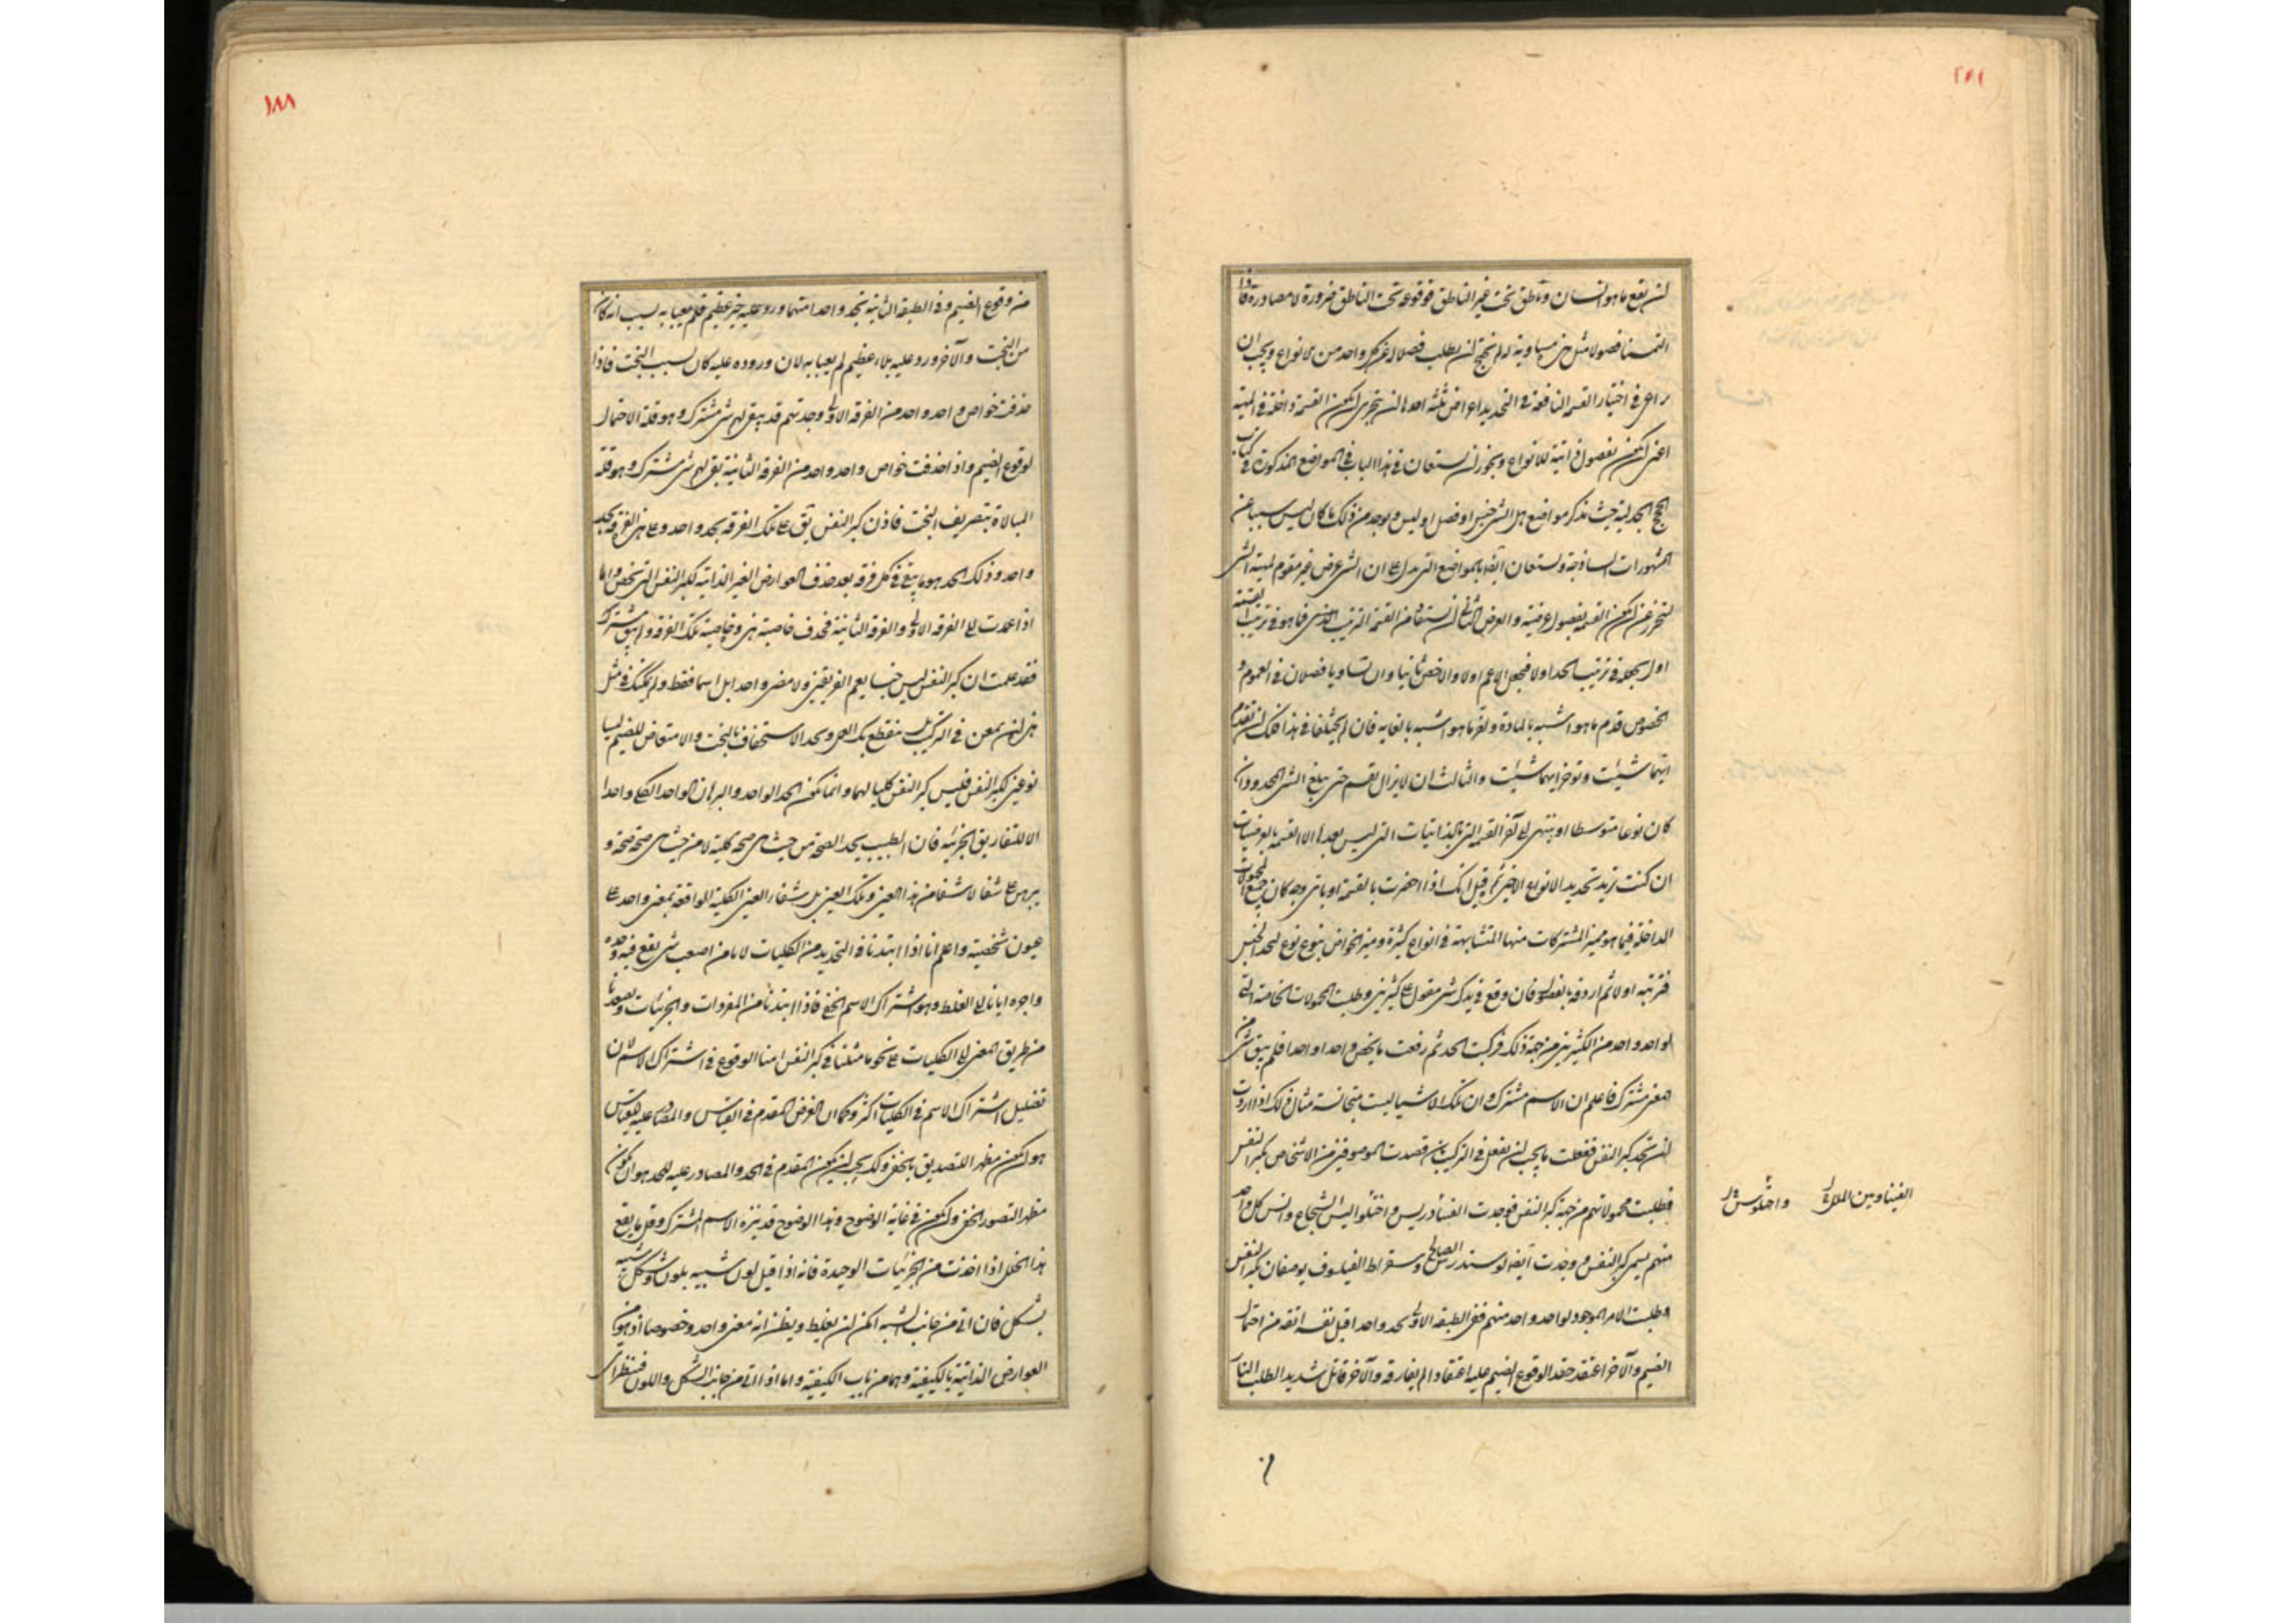 ٢٨١
لن يقع ما هو انسان وناطق تحت غير الناطق فوقوعه تحت الناطق ضرورة لا مصادرة فاذا
التمسنا فصولا مثل هذه مساوية له لم نحتج لن يطلب فصلا لغير كل واحد من الانواع ويجب ان
يراعى في اختيار القسمة النافعة في التحديد اغراض ثلثة احدها لن يتحرى لتكون القسمة داخلة في المهية
اعنى لتكون بفصول ذاتية للانواع ويجوز لن يستعان في هذا الباب في المواضع المذكورة في كتاب
الحجج الجدلية حيث تذكر مواضع هل الشئ جنس او فصل او ليس ويوجد من ذلك ما كان ليس سببا عن
المشهورات الساذجة ويستعان ايضا بالمواضع التى تدل على ان الشئ عرض غير مقوم لمهية الشئ
لتحرز عن لتكون القسمة بفصول عرضية والغرض الثانى لن يستفاد من القسمة الترتيب الذى فما هو في ترتيب القسمة
اول يجعله في ترتيب الحد اولا فيجعل الاعم اولا والاخص ثانيا وان تساويا فصلان في العموم و
الخصوص قدم ما هو اشبه بالمادة واخر ما هو اشبه بالغاية فان لم يختلفا في هذا فلك لن تقدم
ايتهما شيئت وتوخر ايهما شيئت والثالث ان لا يزال يقسم حتى يبلغ الشئ المحدود ان
كان نوعا متوسطا او ينتهى الى آخر القسمة التى بالذاتيات التى ليس بعدها الا القسمة بالعرضيات
ان كنت تريد تحديد الانواع الاخيرة ثم قيل انك اذا احضرت بالقسمة او باى وجه كان جميع المحمولات
الداخلة فيما هو ميز المشتركات منها المتشابهة في انواع كثيرة وميز الخواص بنوع نوع لتحد الجنس
فترتبه اولا ثم اردفه بالفصل فان وقع في يدك شئ مقول على كثيرين وطلبت المحمولات الخاصة التى
لواحد واحد من الكثيرين من جهة ذلك فركبت الحد ثم رفعت ما يخص واحدا واحدا فلم يبق شئ من
المعنى مشترك فاعلم ان الاسم مشترك وان تلك الاشيا ليست متجانسة مثال ذلك اذا اردت
لن تحد كبر النفس ففعلت ما يجب لن تفعل في التركيب بان قصدت الموصوفين من الاشخاص بكبر النفس
فطلبت محمولاتهم من جهة كبر النفس فوجدت القسادريس واخلوا ليس الشجاع وانس كل واحد
منهم يسمى كبير النفس ووجدت ايضا لوسندرس الصالح وسقراط الفيلسوف يوصفان بكبر النفس
فطلبت الامر الموجود لواحد واحد منهم ففى الطبقة الاولى تحد واحدا قبل نفسه انفة من احتمال
الضيم والآخر اعتقد حقد الوقوع الضيم عليه اعتقادا لم يفارقه والآخر قاتل شديد الطلب الثار
واخلوس
١٨٨
من وقوع الضيم وفى الطبقة الثانية تجد واحدا منهما ورد عليه خير عظيم فلم يعبأ به لسبب انه كان
من البخت والآخر ورد عليه بلاء عظيم لم يعبأ به لان وروده عليه كان لسبب البخت فاذا
حذفت خواص واحد واحد من الفرقة الاولى وجدتهم قد يبقى لهم شئ مشترك وهو قلة الاحتمال
لوقوع الضيم واذا حذفت خواص واحد واحد من الفرقة الثانية بقى لهم شئ مشترك وهو قلة
المبالاة بتصريف البخت فاذن كبر النفس يق على تلك الفرقة بحد واحد وعلى هذه الفرقة بحد
واحد وذلك الحد هو ما يبقى في كل فرقة بعد حذف العوارض الغير الذاتية لكبر النفس التى تخص واما
اذا عمدت الى الفرقة الاولى والفرقة الثانية فتحذف خاصية هذه وخاصية تلك الفرقة ولم يبق مشترك
فقد علمت ان كبر النفس ليس جنسا يعم الفريقين ولا معنى واحد بل اسما فقط ولم يمكنك في مثل
هذا لن تمعن في التركيب بل ينقطع بك العمل وتجد الاستخفاف بالبخت والامتعاض للضيم ليسا
نوعين لكبر النفس فليس كبر النفس كليا لهما وانما يكون الحد الواحد والبرهان الواحد الكلى واحدا
لا للتفاريق الجزئية فان الطبيب يحد الصحة من حيث هى صحة كلية لا من حيث هى صحة صحة و
يبرهن على شفا لا شفا من هذا العين وتلك العين بل شفا العين الكلية الواقعة بمعنى واحد على
عيون شخصية واعلم انا اذا ابتدئنا في التحديد من الكليات لا نامن اصعب شئ يقع فيه وحده
واجره ايانا الى الغلط وهو اشتراك الاسم الخفى فاذا ابتدئنا من المفردات والجزئيات وصعدنا
من طريق المعنى الى الكليات على نحو ما مثلنا في كبر النفس امنا الوقوع في اشتراك الاسم لان
تضليل اشتراك الاسم في الكليات اكثر وكما ان الغرض المقدم في القياس والمصادر عليه للقياس
هو لتكون مظهرا للتصديق بالخفى وكذلك يجب لن يكون المقدم في الحد والمصادر عليه للحد هو ان يكون
مظهر التصور الخفى ولتكون في غاية الوضوح وهذا الوضوح قد ينزه الاسم المشترك وقل ما يقع
هذا الخلل اذا اخذت من الجزئيات الوحيدة فانه اذا قيل لون شبيه بلون وشكل شبيه
بشكل فان اتى من جانب الشبه امكن لن يغلط ويظن انه معنى واحد وخصوصا اذ هو من
العوارض الذاتية بالكيفية وهما من باب الكيفية واما اذا اتى من جانب الشكل واللون فينظر الى